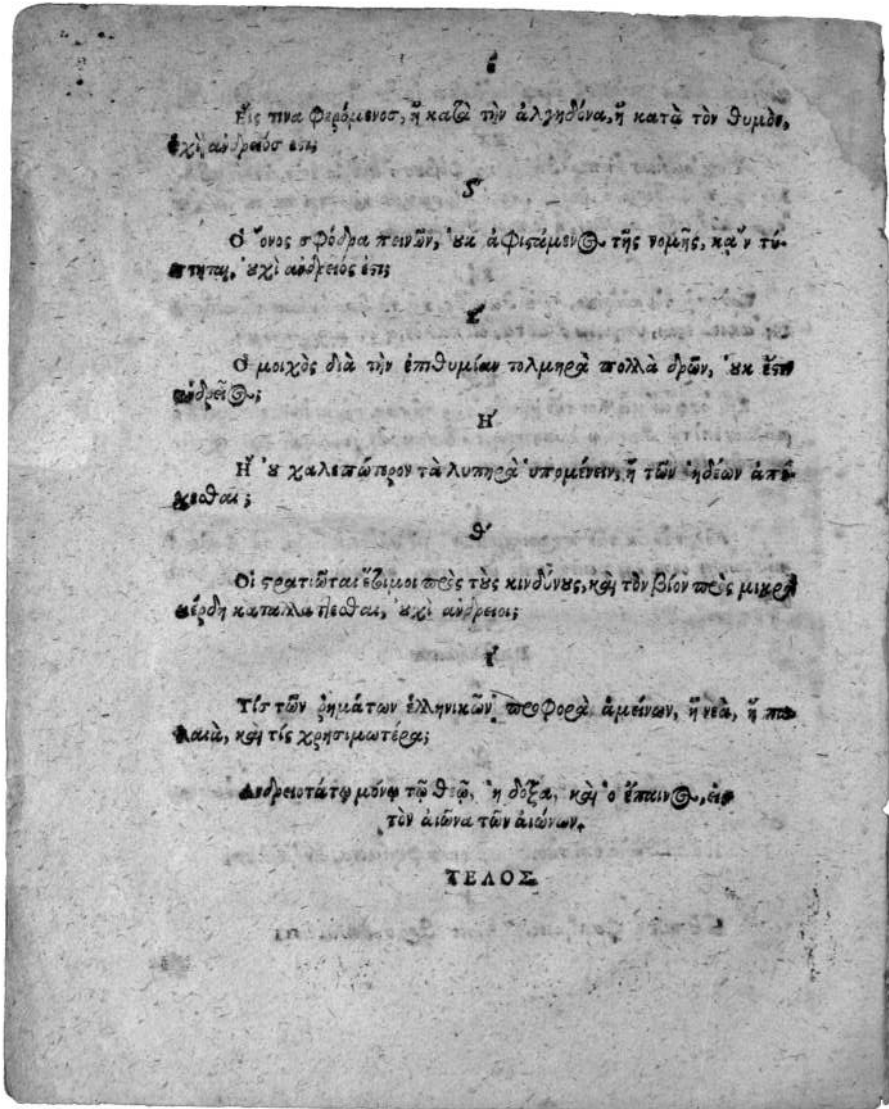 έ
Εἴς τινα φερόμενοσ, ἢ κατὰ τὴν ἀλγηδόνα, ἢ κατὰ τὸν θυμὸν,
ὀχὶ ἀνδρεῖόσ ἐςι;
ϛ΄
Ο ὄνος σφόδρα πεινῶν, ȣ̓κ ἀφιςάμενος τῆς νομῆς, κᾂν τύ-
πτηται, ȣ̓χὶ ἀνδρεῖός ἐςι;
ζ΄
Ο μοιχὸς διὰ τὴν ἐπιθυμίαν τολμηρὰ πολλὰ δρῶν, ȣ̓κ ἔςιν
ἀνδρεῖος;
Η΄
Ἢ ȣ̓ χαλεπώτερον τὰ λυπηρὰ ὑπομένειν, ἢ τῶν ἡδέων ἀπέ-
χεσθαι;
θ΄
Οἱ ςρατιῶται ἕτοιμοι πρὸς τȣ̀ς κινδύνȣς, καὶ τὸν βίον πρὸς μικρὰ
κέρδη καταλλάττεσθαι, ȣ̓χὶ ἀνδρειοι;
ί
Τίσ τῶν ῥημάτων ἑλληνικῶν προφορὰ ἀμείνων, ἢ νεὰ, ἢ πα-
λαιὰ, καὶ τίς χρησιμωτέρα;
Ανδρειοτάτῳ μόνῳ τῷ θεῷ, ἡ δόξα, καὶ ὁ ἔπαινος, εἰς
τὸν ἀιῶνα τῶν ἀιώνων.
ΤΕΛΟΣ